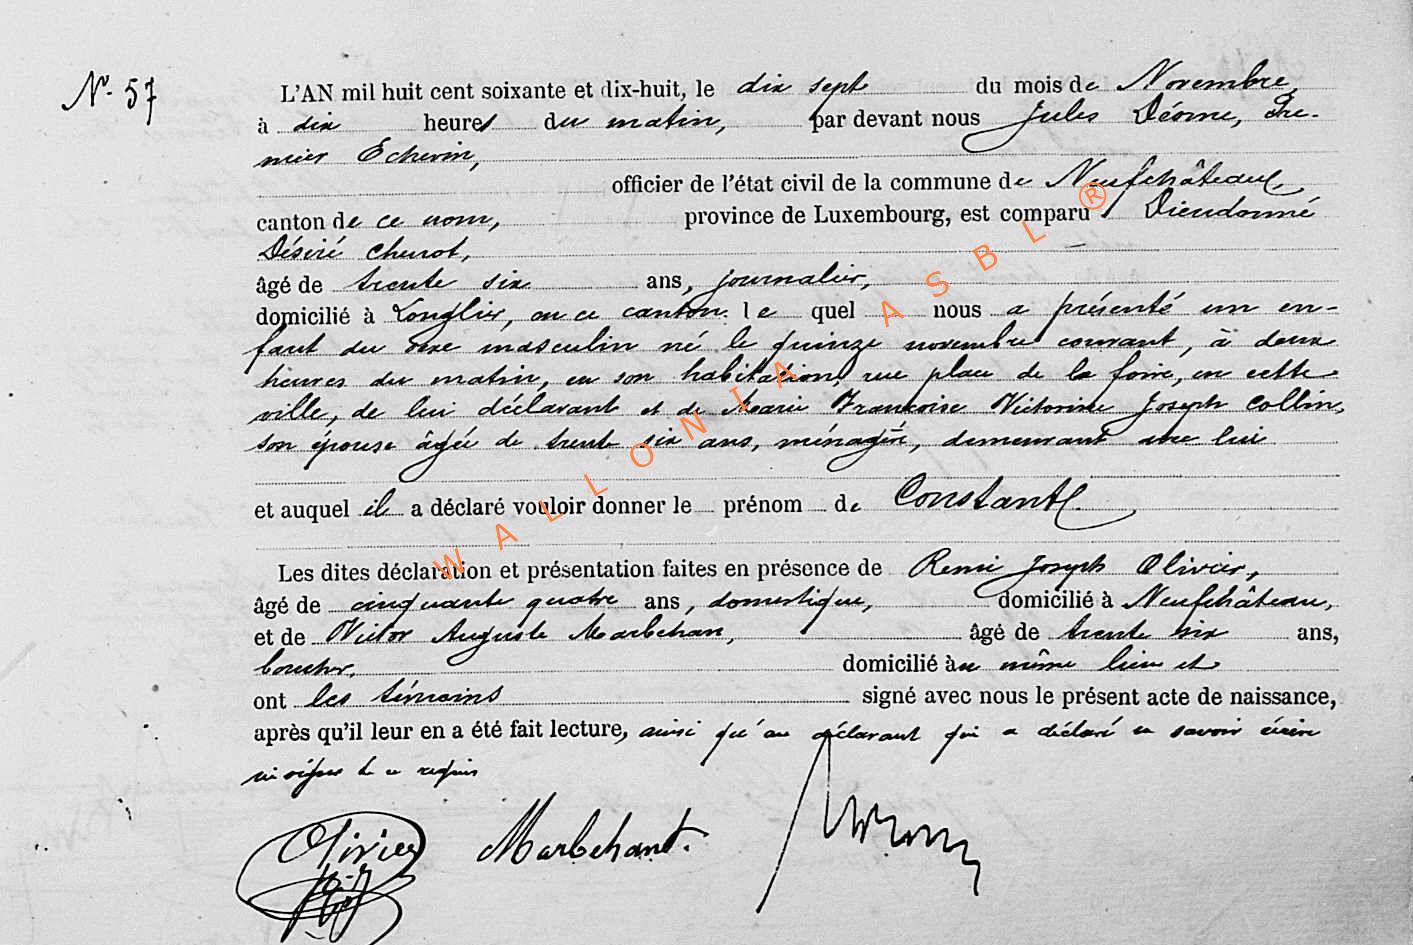 N° 57
L'AN mil huit cent soixante et dix-huit, le dix sept du mois de Novembre,
à dix heures du matin, par devant nous Jules Déome, Pre-
mier Echevin,
officier de l'état civil de la commune de Neufchâteau,
canton de ce nom, province de Luxembourg, est comparu Dieudonné
Désiré Chenot,
âgé de trente six ans, journalier,
domicilié à Longlier, en ce canton. le quel nous a présenté un en-
fant du sexe masculin né le quinze novembre courant, à deux
heures du matin, en son habitation, rue place de la foire, en cette
ville, de lui déclarant et de Marie Françoise Victorine Joseph Collin,
son épouse âgée de trente six ans, ménagère, demeurant avec lui
et auquel il a déclaré vouloir donner le prénom de Constant.
Les dites déclaration et présentation faites en présence de Remi Joseph Olivier,
âgé de cinquante quatre ans, domestique, domicilié à Neufchâteau,
et de Victor Auguste Marbehan, âgé de trente six ans,
boucher, domicilié au même lieu et
ont les témoins signé avec nous le présent acte de naissance,
après qu'il leur en a été fait lecture, ainsi qu'au déclarant qui a déclaré ne savoir écrire
ni signer de ce requis
Olivier Marbehant.
WALLONIA ASBL ®